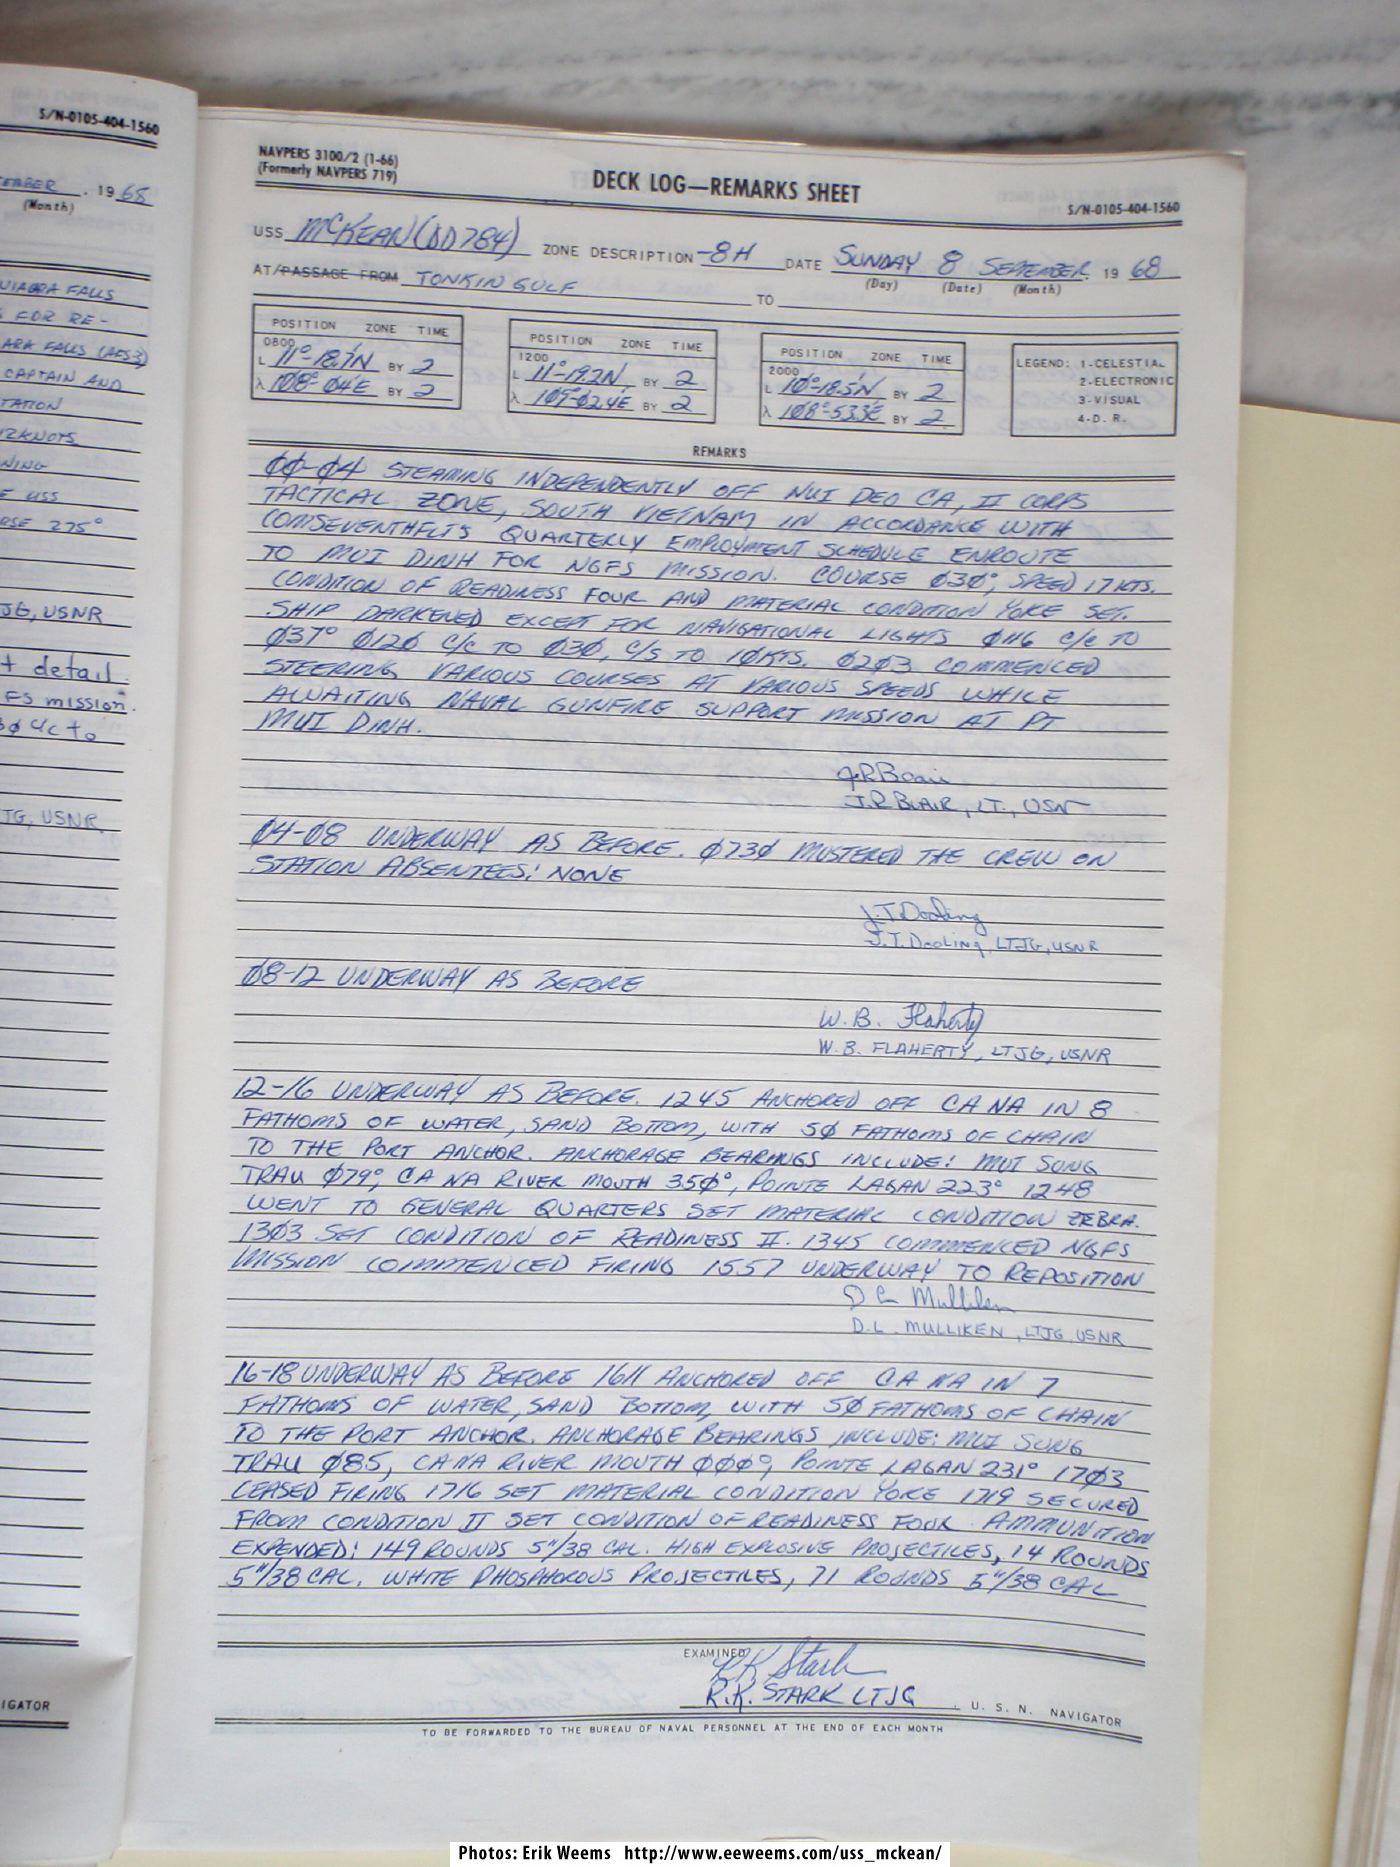 S/N-0105-404-1560
TEMBER. 1968
(Month)
NIAGRA FALLS
G FOR RE-
ARA FALLS (AFS3)
CAPTAIN AND
TATION
12KNOTS
NING
E USS
RSE 275°
JG, USNR
+ detail
FS mission.
JTG, USNR
IGATOR
NAVPERS 3100/2 (1-66)
(Formerly NAVPERS 719)
DECK LOG—REMARKS SHEET
S/N-0105-404-1560
USS McKEAN (DD784) ZONE DESCRIPTION -8H DATE SUNDAY 8 SEPTEMBER. 19 68
(Day) (Date) (Month)
AT/PASSAGE FROM TONKIN GULF TO
POSITION ZONE TIME
0800
L 11°-18.7N BY 2
λ 108°-04'E BY 2
POSITION ZONE TIME
1200
L 11°-19.2N BY 2
λ 109°-02.4'E BY 2
POSITION ZONE TIME
2000
L 10°-18.5N BY 2
λ 108°-53.3'E BY 2
LEGEND: 1-CELESTIAL
2-ELECTRONIC
3-VISUAL
4-D. R.
REMARKS
ØØ-Ø4 STEAMING INDEPENDENTLY OFF NUI DEO CA, II CORPS
TACTICAL ZONE, SOUTH VIETNAM IN ACCORDANCE WITH
COMSEVENTHFLT'S QUARTERLY EMPLOYMENT SCHEDULE ENROUTE
TO MUI DINH FOR NGFS MISSION. COURSE Ø3Ø°, SPEED 17 KTS.
CONDITION OF READINESS FOUR AND MATERIAL CONDITION YOKE SET.
SHIP DARKENED EXCEPT FOR NAVIGATIONAL LIGHTS Ø116 C/C TO
Ø37° Ø12Ø C/C TO Ø3Ø, C/S TO 1ØKTS. Ø2Ø3 COMMENCED
STEERING VARIOUS COURSES AT VARIOUS SPEEDS WHILE
AWAITING NAVAL GUNFIRE SUPPORT MISSION AT PT
MUI DINH.
J.R. Blair
J.R. BLAIR, LT., USN
Ø4-Ø8 UNDERWAY AS BEFORE. Ø73Ø MUSTERED THE CREW ON
STATION ABSENTEES: NONE
J.T. Dooling
J.T. Dooling, LTJG, USNR
Ø8-12 UNDERWAY AS BEFORE
W. B. Flaherty
W. B. FLAHERTY, LTJG, USNR
12-16 UNDERWAY AS BEFORE. 1245 ANCHORED OFF CA NA IN 8
FATHOMS OF WATER, SAND BOTTOM, WITH 5Ø FATHOMS OF CHAIN
TO THE PORT ANCHOR. ANCHORAGE BEARINGS INCLUDE: MUI SONG
TRAU Ø79°, CA NA RIVER MOUTH 35Ø°, POINTE LAGAN 223° 1248
WENT TO GENERAL QUARTERS SET MATERIAL CONDITION ZEBRA.
13Ø3 SET CONDITION OF READINESS II. 1345 COMMENCED NGFS
MISSION COMMENCED FIRING 1557 UNDERWAY TO REPOSITION
D L Mulliken
D. L. MULLIKEN, LTJG, USNR
16-18 UNDERWAY AS BEFORE 1611 ANCHORED OFF CA NA IN 7
FATHOMS OF WATER, SAND BOTTOM, WITH 5Ø FATHOMS OF CHAIN
TO THE PORT ANCHOR. ANCHORAGE BEARINGS INCLUDE: MUI SONG
TRAU Ø85, CA NA RIVER MOUTH ØØØ°, POINTE LAGAN 231° 17Ø3
CEASED FIRING 1716 SET MATERIAL CONDITION YOKE 1719 SECURED
FROM CONDITION II SET CONDITION OF READINESS FOUR. AMMUNITION
EXPENDED: 149 ROUNDS 5"/38 CAL. HIGH EXPLOSIVE PROJECTILES, 14 ROUNDS
5"/38 CAL. WHITE PHOSPHOROUS PROJECTILES, 71 ROUNDS 5"/38 CAL
EXAMINED
R K Stark
R.K. STARK LTJG, U. S. N. NAVIGATOR
TO BE FORWARDED TO THE BUREAU OF NAVAL PERSONNEL AT THE END OF EACH MONTH
Photos: Erik Weems http://www.eeweems.com/uss_mckean/